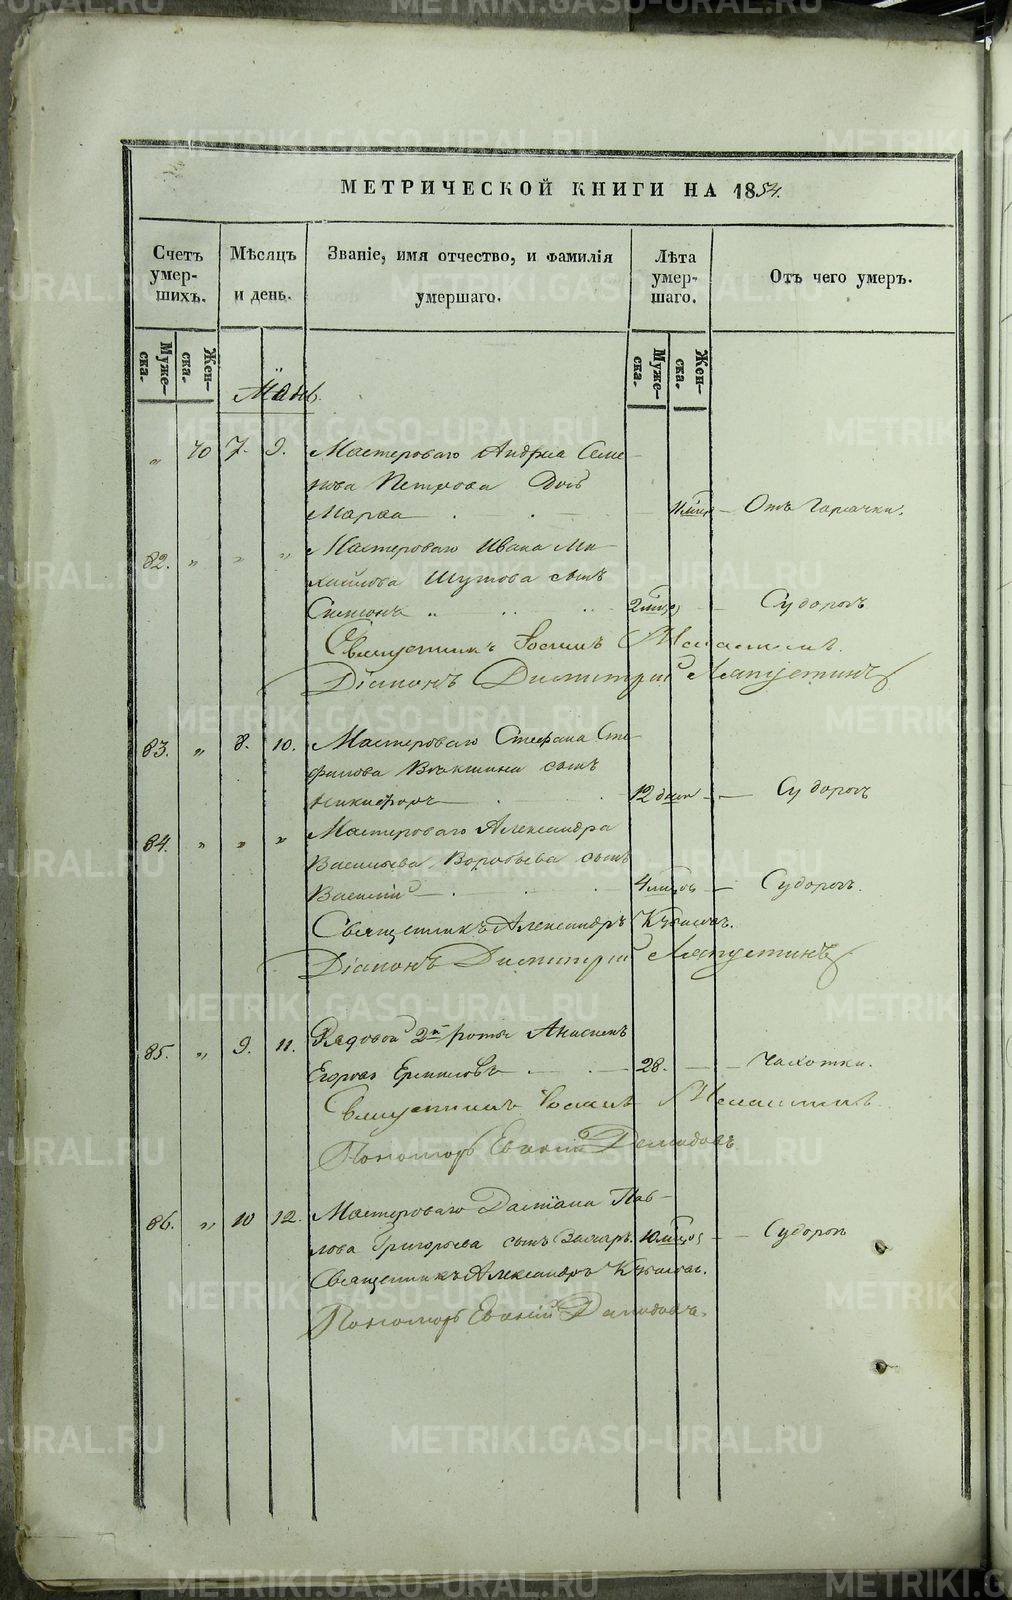 МЕТРИЧЕСКОЙ КНИГИ НА 1854.
Счетъ умер- шихъ.
Мѣсяцъ и день.
Званіе, имя отчество, и фамилія умершаго.
Лѣта умер- шаго.
Отъ чего умеръ.
Муже- ска.
Жен- ска.
Муже- ска.
Жен- ска.
Май
„ 40 7. 9. Мастероваго Андреа Семе-
нова Петрова Дочь
Марѳа Отъ Гарячки.
82. „ „ „ Мастероваго Ивана Ми-
хайлова Шутова сынъ
Симеонъ 2 Судорогъ
Священникъ Іоаннъ
Діаконъ Димитрій Ляпустинъ
83. „ 8. 10. Мастероваго Стефана Сте-
фанова сынъ
Никифоръ 12 дней Судорогъ
84. „ „ „ Мастероваго Александра
Васильева Воробьева сынъ
Василій 4 мѣсяцъ Судорогъ.
Священникъ Александръ
Діаконъ Димитрій Ляпустинъ
85. „ 9. 11. Рядовой 2й роты
Егоровъ Ермиловъ 28. Чахотки.
Священникъ Іоаннъ
Пономарь Евгеній Демидовъ
86. „ 10 12. Мастероваго Даміана Пав-
лова Григорьева сынъ Захаръ. 10 Судорогъ
Священникъ Александръ
Пономарь Евгеній Демидовъ.
METRIKI.GASO-URAL.RU